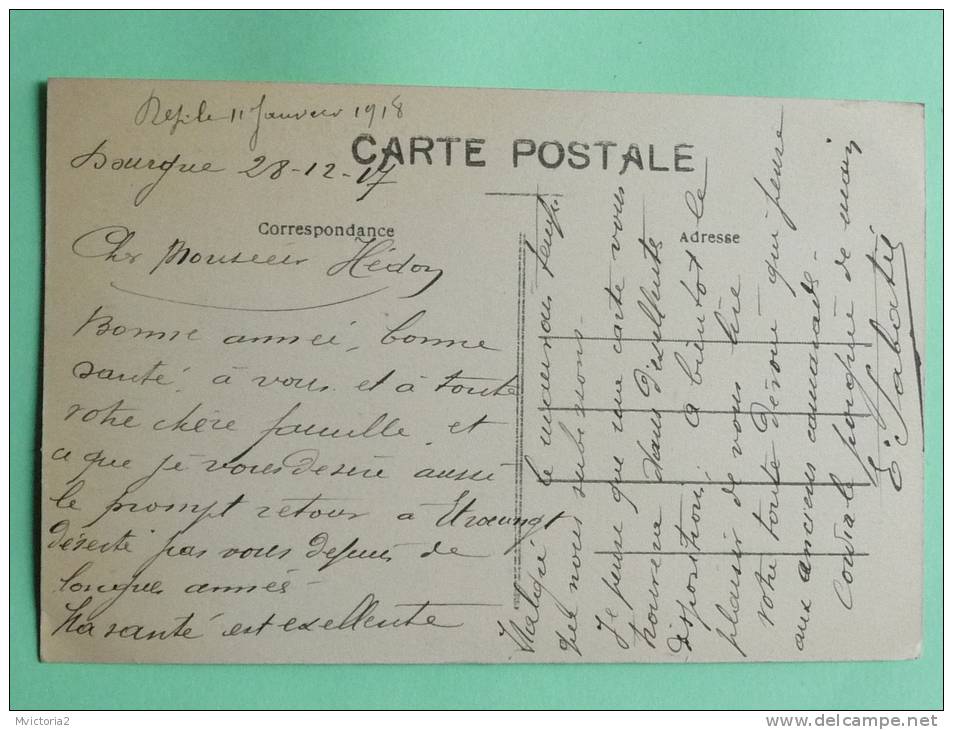 11 Janvier 1918
Dourgne 28-12-17
CARTE POSTALE
Correspondance
Adresse
Cher Monsieur Hédon
Bonne année, bonne
santé, à vous et à toute
votre chère famille, et
ce que je vous desire aussi
le prompt retour à Etroeungt
déserté par vous depuis de
longues années
Ma santé est exellente
Malgré le mauvais temps
que nous subissons -
Je pense que ma carte vous
trouvera dans d'exellente
disposition, a bientot le
plaisir de vous lire
votre toute dévoué qui pense
aux anciens camarade -
Cordiale poignée de main
E. Sabatié
Mvictoria2
www.delcampe.net